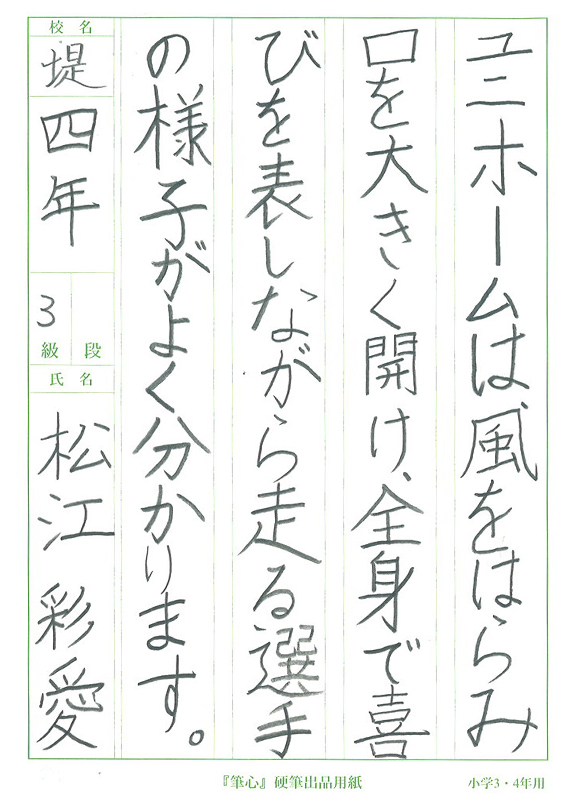 ユニホームは、風をはらみ
口を大きく開け、全身で喜
びを表しながら走る選手
の様子がよく分かります。
校名
堤
四年
3
級 段
氏名
松江 彩愛
『筆心』硬筆出品用紙
小学3・4年用